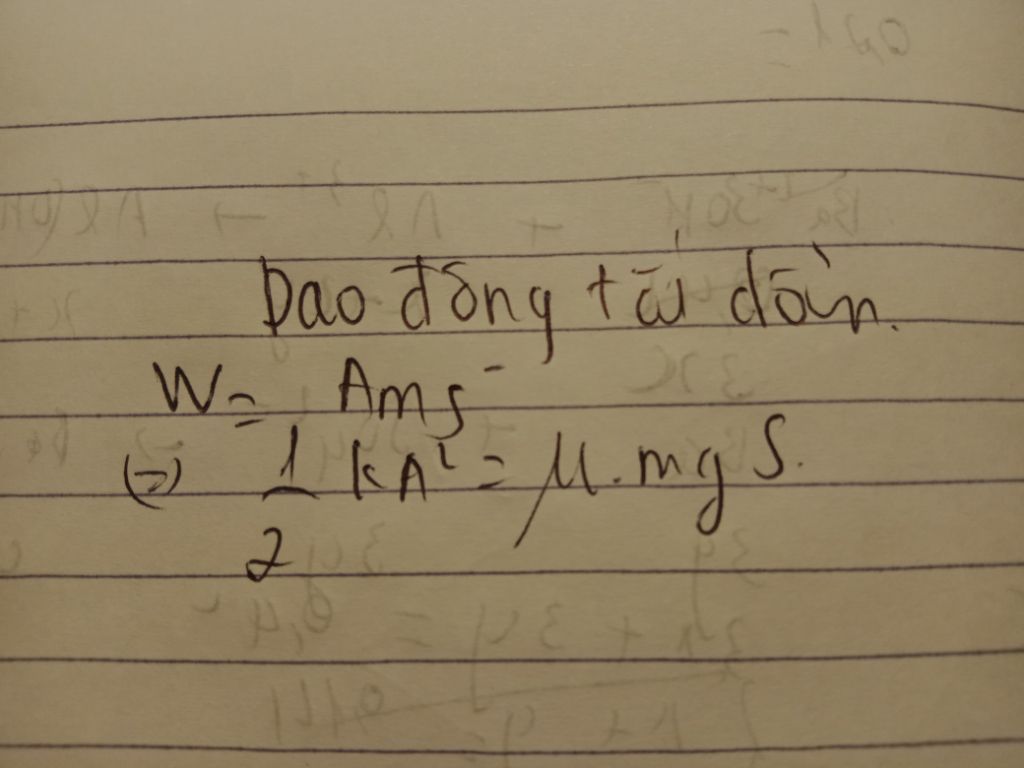 Dao động tắt dần.
W = Ams
(=) 1/2 kA² = μ.mg S.